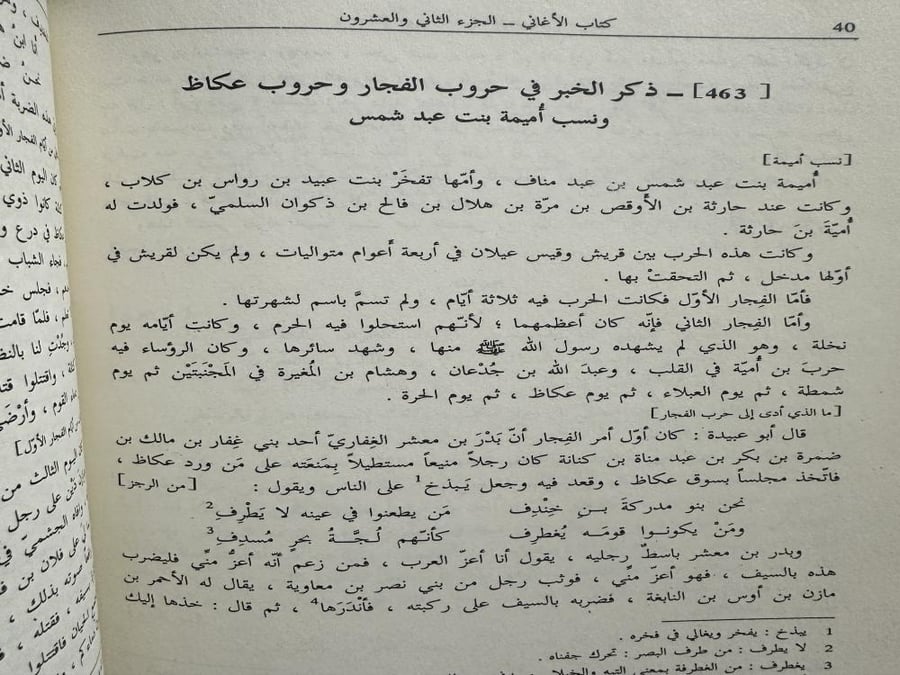 كتاب الأغاني – الجزء الثاني والعشرون
40
[463] – ذكر الخبر في حروب الفجار وحروب عكاظ
ونسب أُميمة بنت عبد شمس
[نسب أميمة]
أُميمة بنت عبد شمس بن عبد مناف ، وأمّها تفخَرْ بنت عبيد بن رواس بن كلاب ،
وكانت عند حارثة بن الأوقص بن مرّة بن هلال بن فالح بن ذكوان السلميّ ، فولدت له
أُميّةَ بنَ حارثة .
وكانت هذه الحرب بين قريش وقيس عيلان في أربعة أعوام متواليات ، ولم يكن لقريش في
أوّلها مدخل ، ثم التحقتْ بها .
فأمّا الفِجار الأوّل فكانت الحرب فيه ثلاثة أيّام ، ولم تسمَّ باسم لشهرتها .
وأما الفِجار الثاني فإنّه كان أعظمهما ؛ لأنّهم استحلوا فيه الحرم ، وكانت أيّامه يوم
نخلة ، وهو الذي لم يشهده رسول الله ﷺ منها ، وشهد سائرها ، وكان الرؤساء فيه
حربَ بن أُميّة في القلب ، وعبدَ الله بن جُدْعان ، وهشام بن المُغيرة في المَجْنَبَتَيْن ثم يوم
شمطة ، ثم يوم العبلاء ، ثم يوم عكاظ ، ثم يوم الحرة .
[ما الذي أدى إلى حرب الفجار]
قال أبو عبيدة : كان أوّل أمر الفِجار أنّ بَدْرَ بن معشر الغفاريّ أحد بني غِفار بن مالك بن
ضمرة بن بكر بن عبد مناة بن كنانة كان رجلاً منيعاً مستطيلاً بِمَنعَته على مَن ورد عكاظ ،
فاتّخذ مجلساً بسوق عكاظ ، وقعد فيه وجعل يَبذخ1 على الناس ويقول : [من الرجز]
نحن بنو مدركةَ بـنِ خِنْدِف مَن يطعنوا في عينه لا يَطْرِفِ2
ومَنْ يكونـوا قومَـه يُغطرف كأنّـهم لُـجَّـةُ بحرٍ مُسدِفِ3
وبدر بن معشر باسطٌ رجليه ، يقول أنا أعزّ العرب ، فمن زعم أنّه أعزُّ منّي فليضرب
هذه بالسيف ، فهو أعزّ منّي ، فوثب رجل من بني نصر بن معاوية ، يقال له الأحمر بن
مازن بن أوس بن النابغة ، فضربه بالسيف على ركبته ، فأنْدَرَها4 ، ثم قال : خذها إليك
1 يبذخ : يفخر ويغالي في فخره .
2 لا يطرف : من طرف البصر : تحرك جفناه .
3 يغطرف : من الغطرفة بمعنى التيه